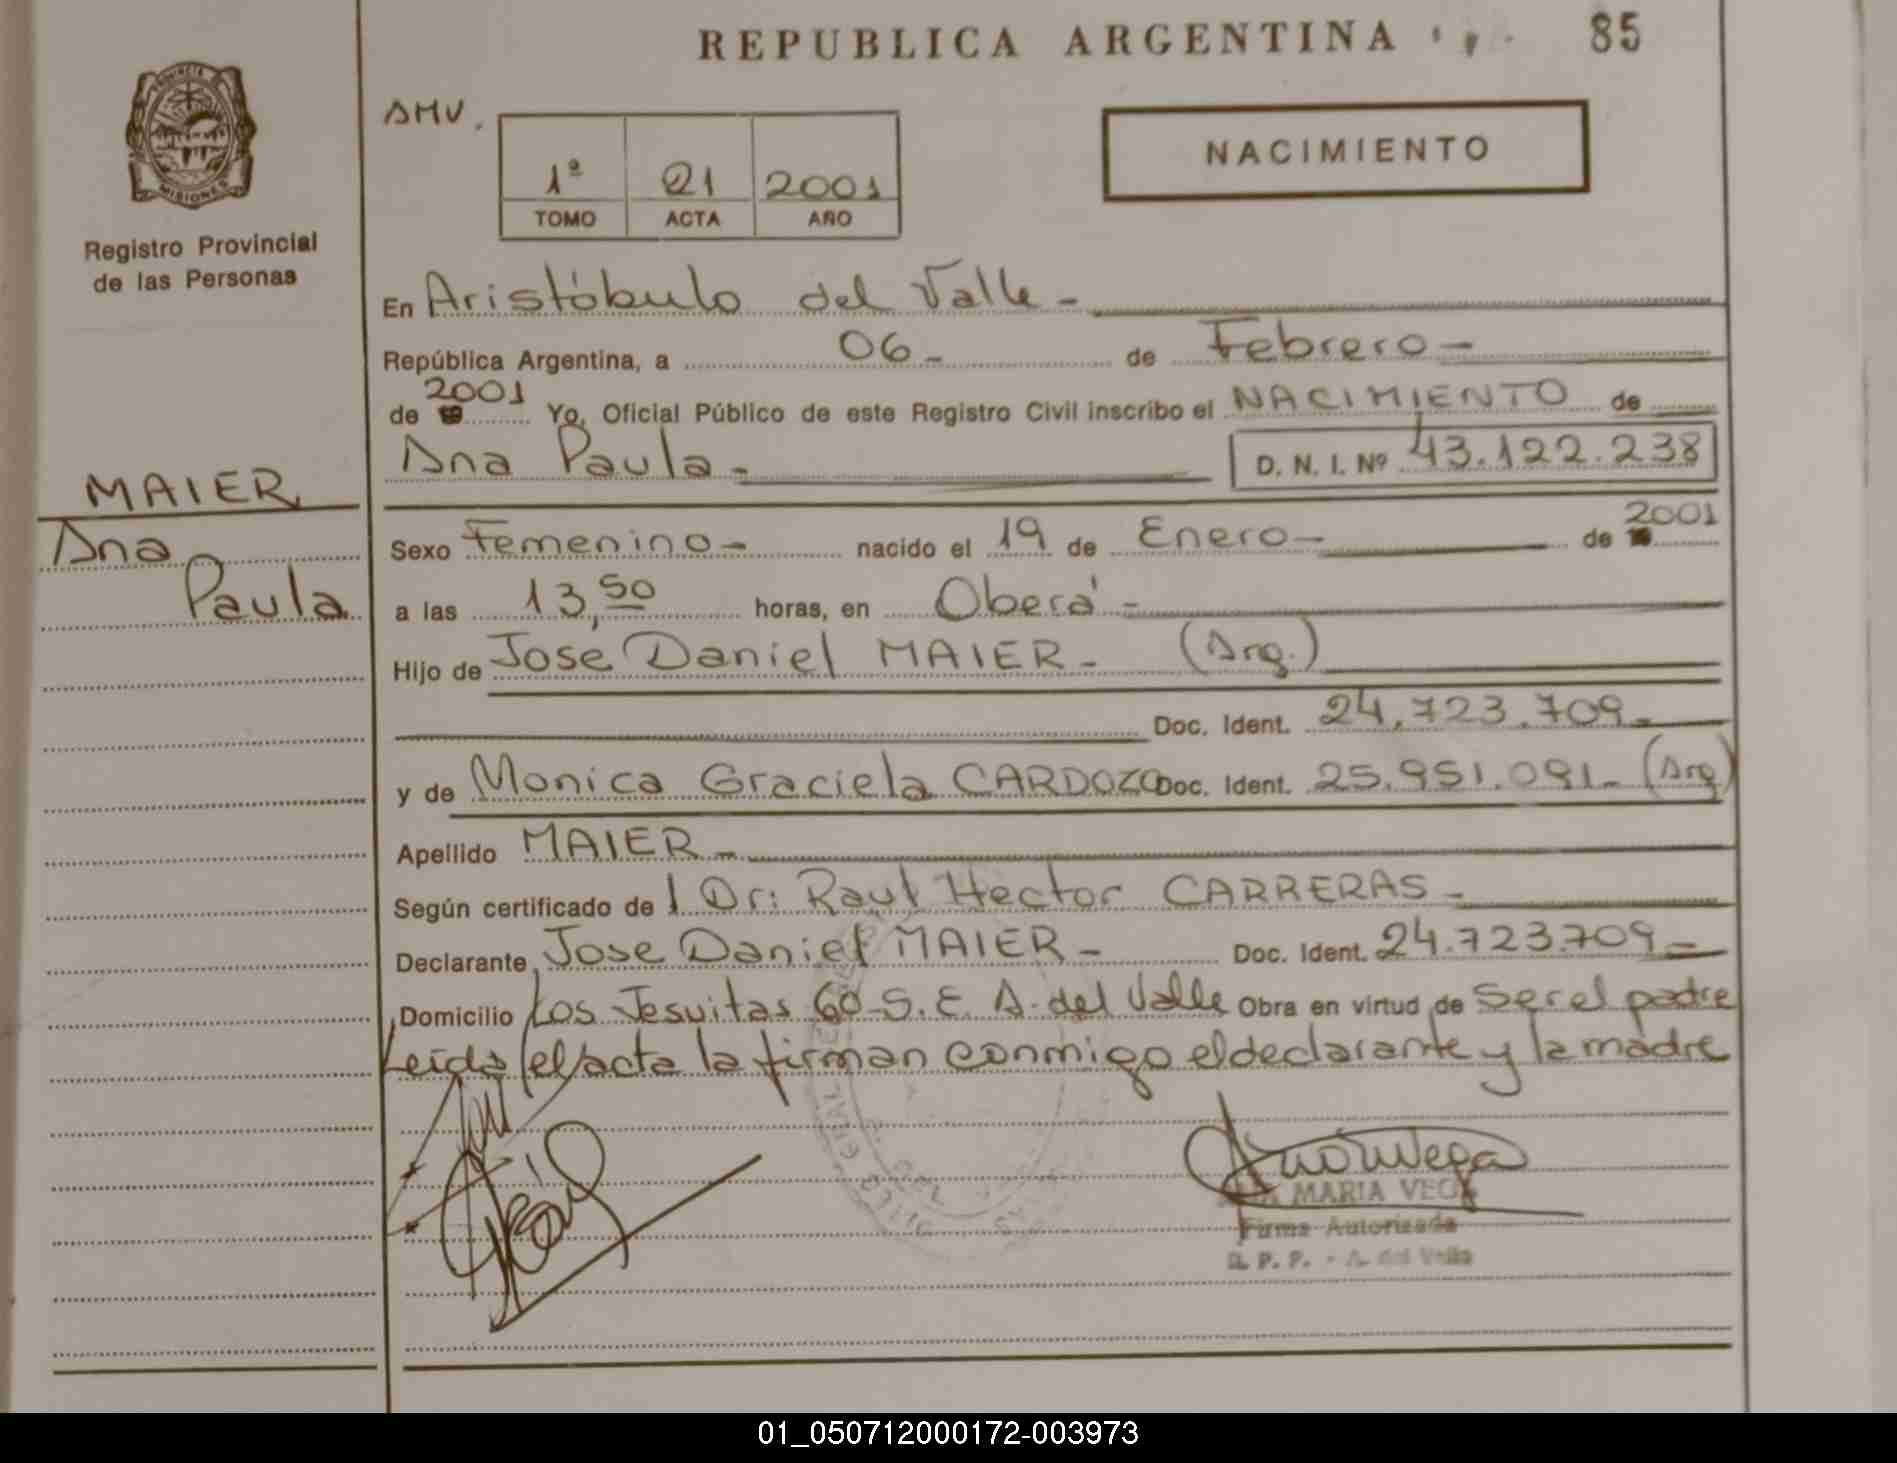 REPUBLICA ARGENTINA
85
PROVINCIA DE
MISIONES
Registro Provincial
de las Personas
AMV.
1ª 21 2001
TOMO ACTA AÑO
NACIMIENTO
En Aristóbulo del Valle -
República Argentina, a 06 - de Febrero -
de 2001 Yo, Oficial Público de este Registro Civil inscribo el NACIMIENTO de
Ana Paula - D. N. I. Nº 43.122.238
MAIER
Ana
Paula
Sexo Femenino - nacido el 19 de Enero - de 2001
a las 13,50 horas, en Oberá -
Hijo de José Daniel MAIER - (Arg.)
Doc. Ident. 24.723.709 -
y de Monica Graciela CARDOZO Doc. Ident. 25.951.091 - (Arg)
Apellido MAIER -
Según certificado de l Dr: Raul Hector CARRERAS -
Declarante Jose Daniel MAIER - Doc. Ident. 24.723.709 -
Domicilio Los Jesuitas 60 - S. E. A. del Valle Obra en virtud de Ser el padre
Leida el acta la firman conmigo el declarante y la madre
MARIA VEGA
Firma Autorizada
R. P. P. - A. del Valle
01_050712000172-003973